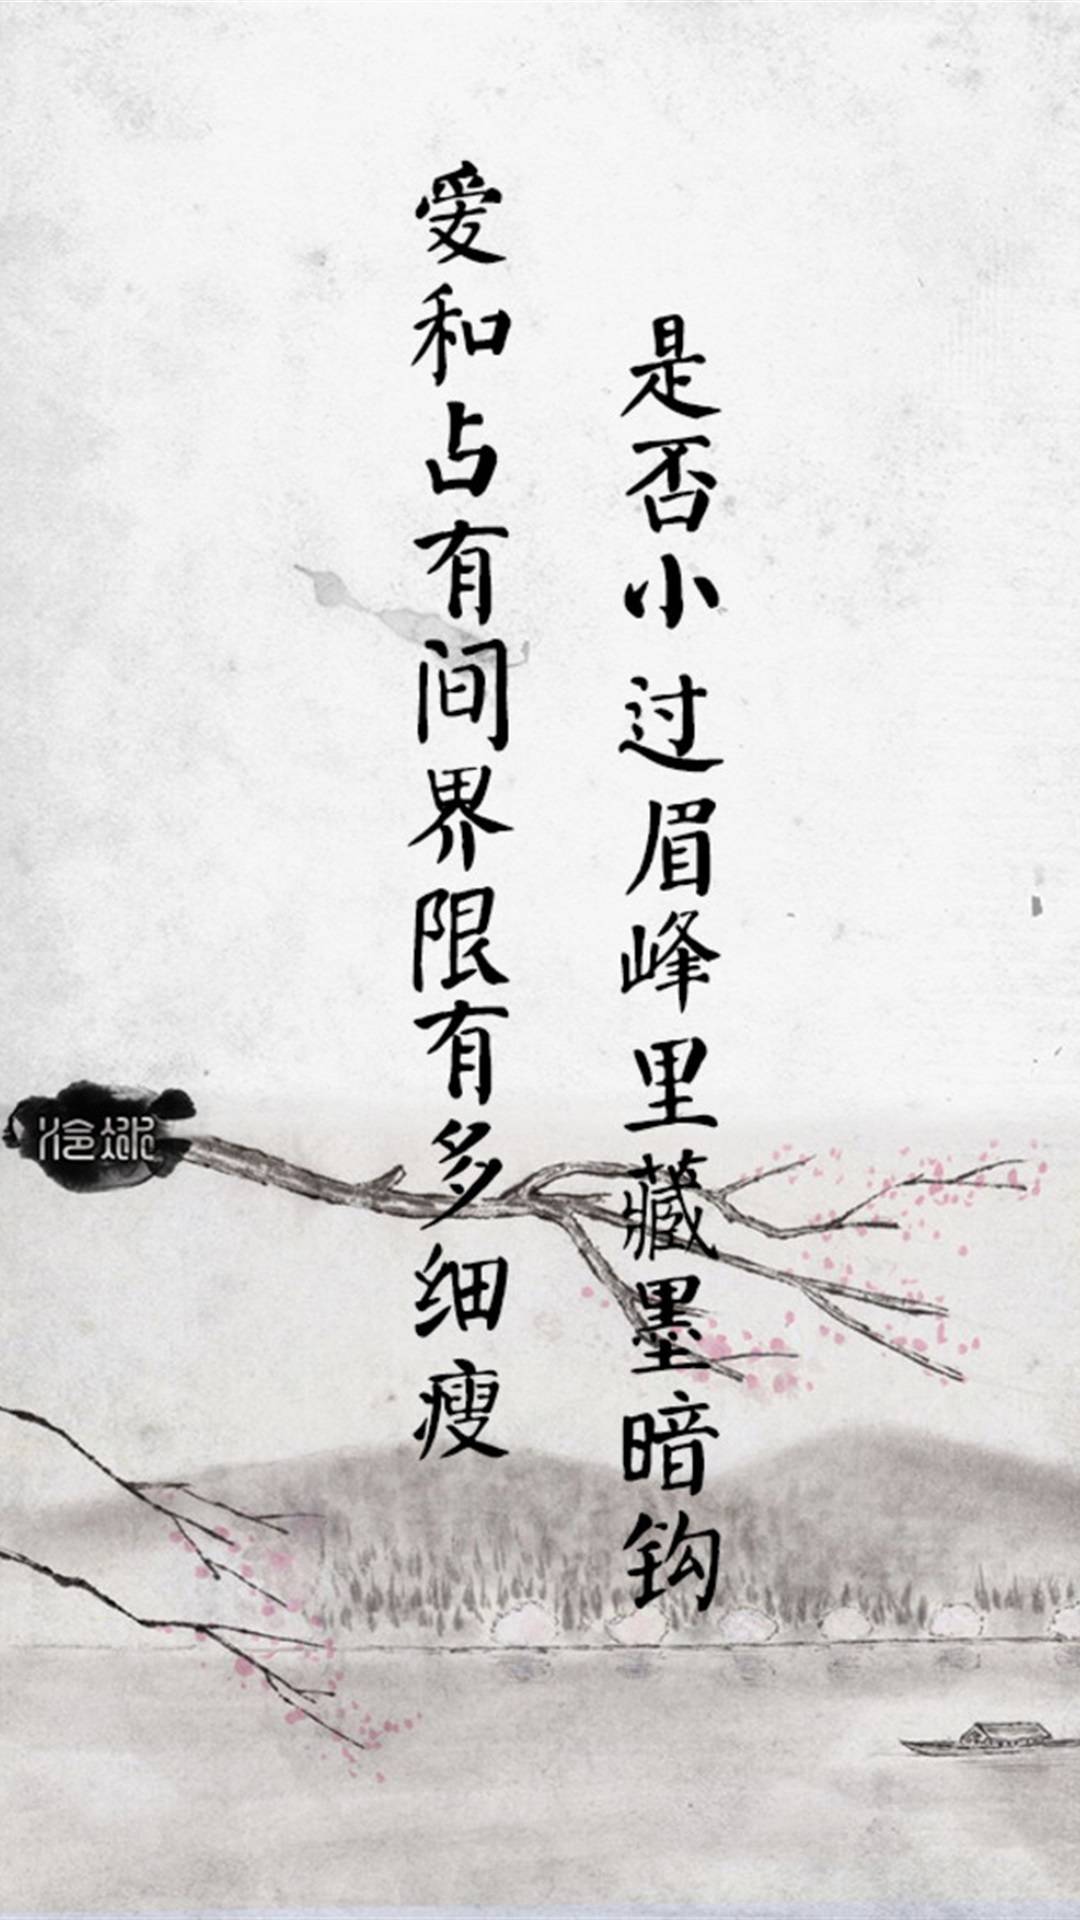 爱和占有间界限有多细瘦
是否小过眉峰里藏墨暗钩